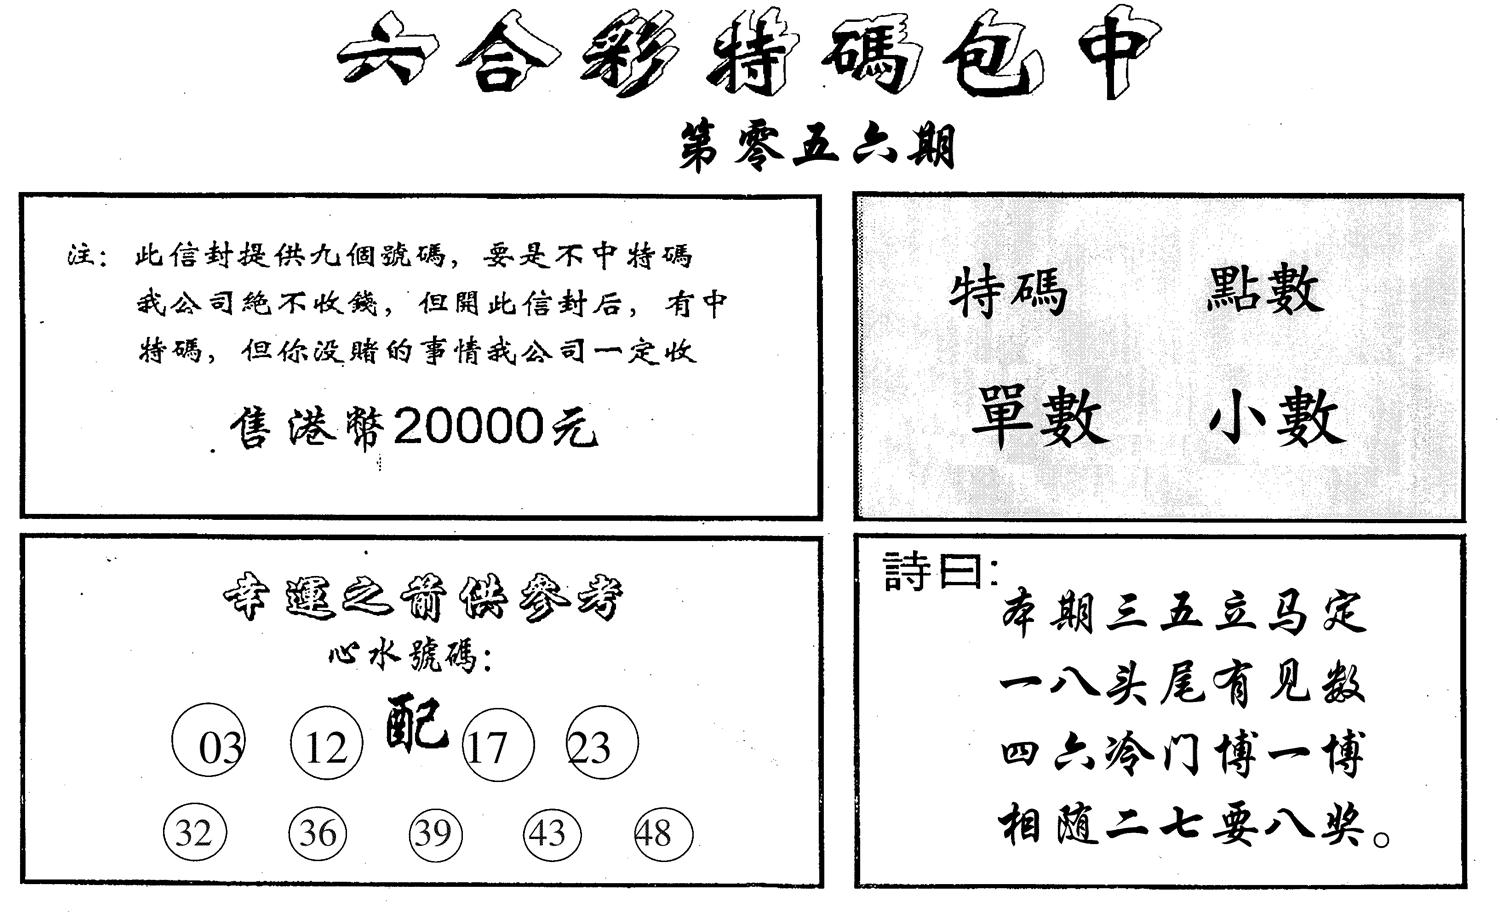 六合彩特碼包中
第零五六期
注：此信封提供九個號碼，要是不中特碼
我公司絕不收錢，但開此信封后，有中
特碼，但你没賭的事情我公司一定收
售港幣20000元
特碼 點數
單數 小數
幸運之箭供參考
心水號碼：
配
03 12 17 23
32 36 39 43 48
詩曰：
本期三五立马定
一八头尾有见数
四六冷门博一博
相随二七要八奖。